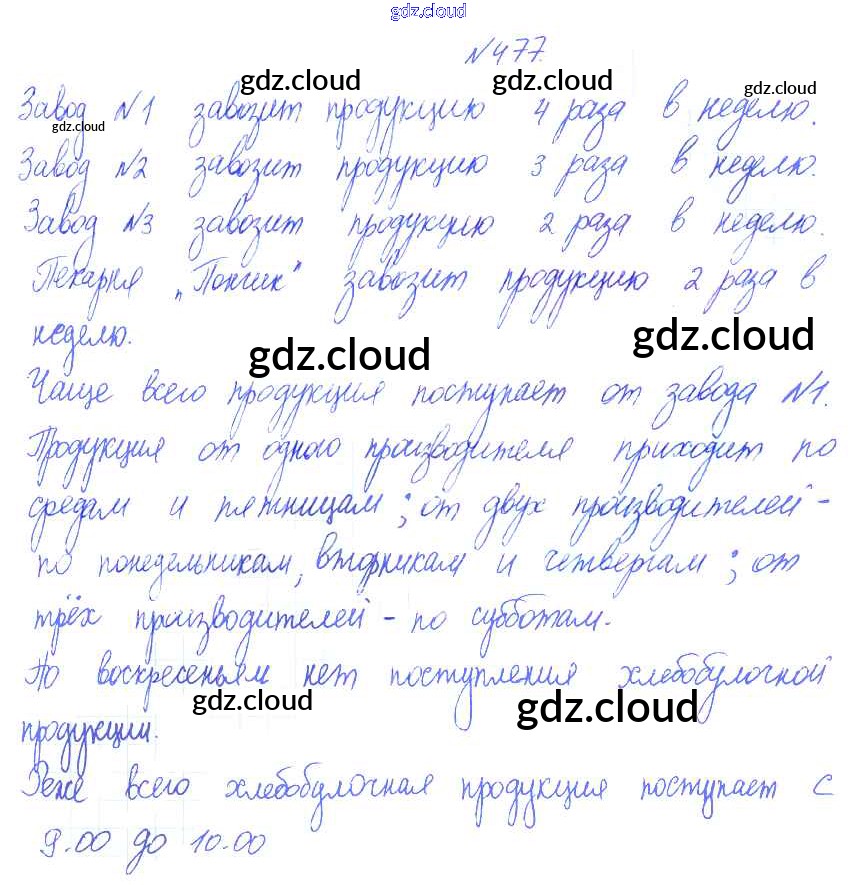 gdz.cloud
№477.
gdz.cloud gdz.cloud
Завод №1 завозит продукцию 4 раза в неделю.
gdz.cloud
Завод №2 завозит продукцию 3 раза в неделю.
Завод №3 завозит продукцию 2 раза в неделю.
Пекарня „Пончик" завозит продукцию 2 раза в
неделю.
gdz.cloud gdz.cloud
Чаще всего продукция поступает от завода №1.
Продукция от одного производителя приходит по
средам и пятницам; от двух производителей -
по понедельникам, вторникам и четвергам; от
трёх производителей - по субботам.
По воскресеньям нет поступления хлебобулочной
gdz.cloud gdz.cloud
продукции.
Реже всего хлебобулочная продукция поступает с
9.00 до 10.00